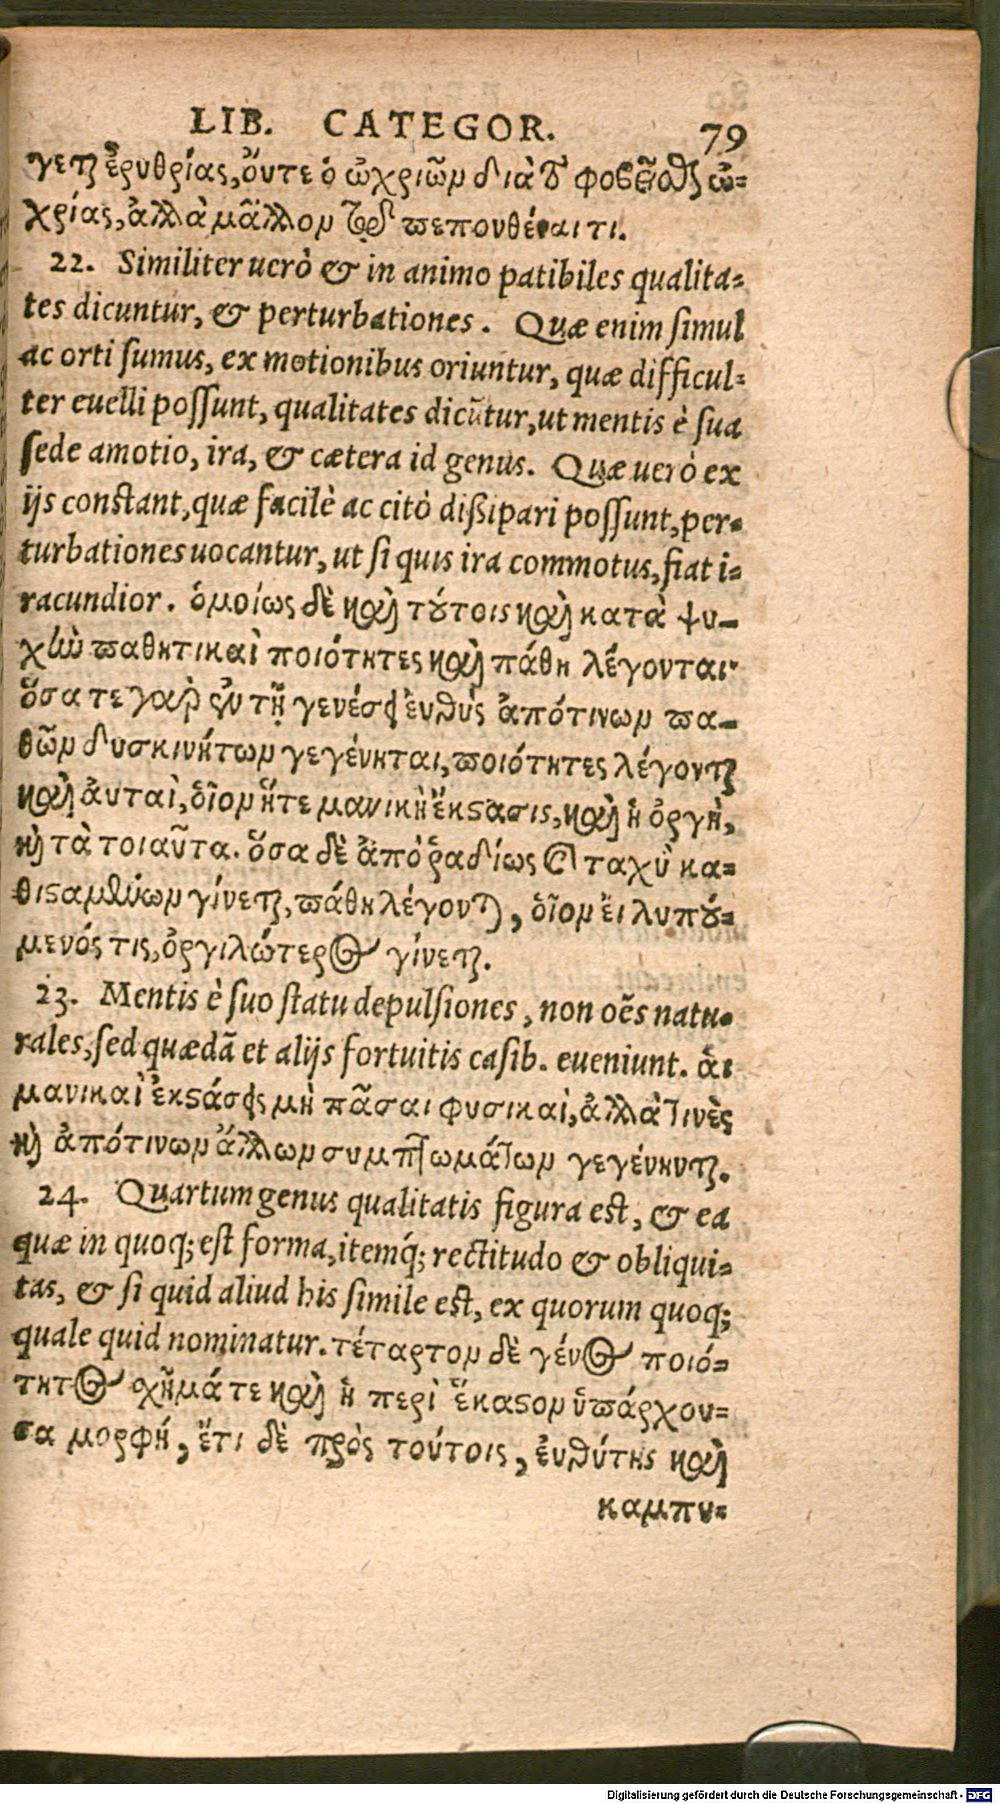 LIB. CATEGOR. 79
γεται ἐρυθρίας, οὔτε ὁ ὠχριῶν διὰ τὸ φοβεῖσθαι ὠ-
χρίας, ἀλλὰ μᾶλλον τῷ πεπονθέναι τι.
22. Similiter uerò & in animo patibiles qualita-
tes dicuntur, & perturbationes. Quæ enim simul
ac orti sumus, ex motionibus oriuntur, quæ difficul-
ter euelli possunt, qualitates dicũtur, ut mentis è sua
sede amotio, ira, & cætera id genus. Quæ uerò ex
ijs constant, quæ facilè ac citò dißipari possunt, per-
turbationes uocantur, ut si quis ira commotus, fiat i-
racundior. ὁμοίως δὲ καὶ τούτοις καὶ κατὰ ψυ-
χὴν παθητικαὶ ποιότητες καὶ πάθη λέγονται·
ὅσα τε γὰρ ἐν τῇ γενέσει ἐυθὺς ἀπότινων πα-
θῶν δυσκινήτων γεγένηται, ποιότητες λέγονται
καὶ ἀυταὶ, ὃῖον ἥτε μανικὴ ἔκστασις, καὶ ἡ ὀργὴ,
καὶ τὰ τοιαῦτα. ὅσα δὲ ἀπὸ ῥαδίως καὶ ταχὺ κα-
θισαμένων γίνεται, πάθη λέγονται, ὃῖον ἒι λυπού-
μενός τις, ὀργιλώτερος γίνεται.
23. Mentis è suo statu depulsiones, non oẽs natu-
rales, sed quædã et alijs fortuitis casib. eueniunt. ἁι
μανικαὶ ἐκστάσεις μὴ πᾶσαι φυσικαὶ, ἀλλὰ τινὲς
καὶ ἀπότινων ἄλλων συμπτωμάτων γεγένηνται.
24. Quartum genus qualitatis figura est, & ea
quæ in quoq; est forma, itemq́; rectitudo & obliqui-
tas, & si quid aliud his simile est, ex quorum quoq;
quale quid nominatur. τέταρτον δὲ γένος ποιό-
τητος σχῆμά τε καὶ ἡ περὶ ἕκαστον ὑπάρχου-
σα μορφή, ἔτι δὲ πρὸς τούτοις, ἐυθύτης καὶ
καμπυ-
Digitalisierung gefördert durch die Deutsche Forschungsgemeinschaft - DFG